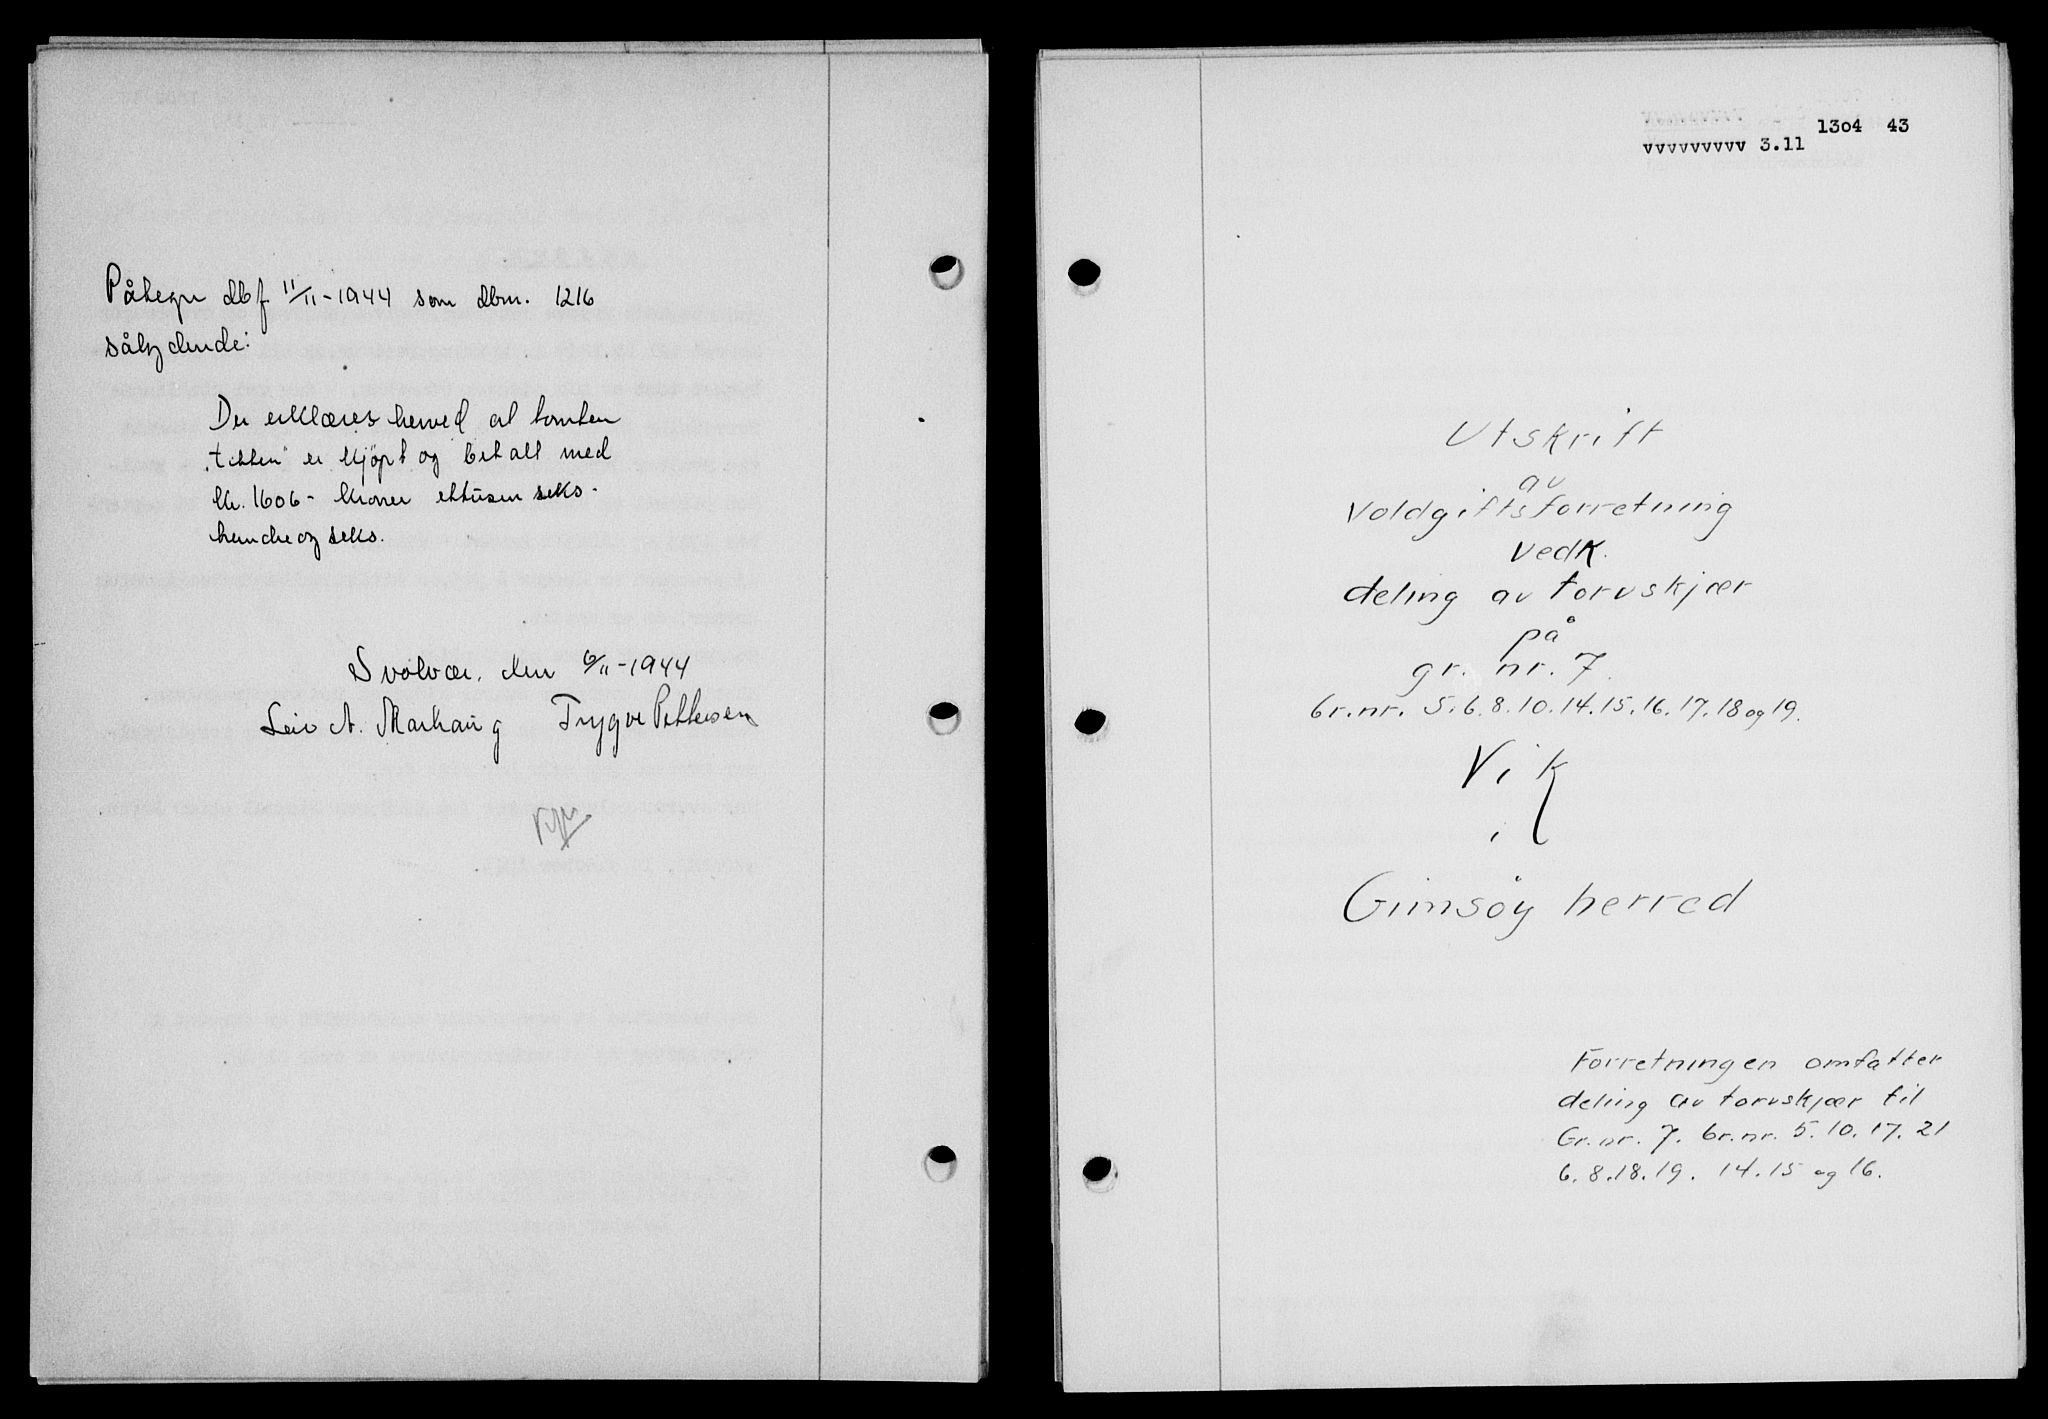 Påtegn dbf 11/11-1944 som dbm. 1216
sålydende:
Der erklæres herved at tomten
"tibben" er kjøpt og betalt med
kr. 1606- kroner ettusen seks-
hundre og seks.
Svolvær, den 6/11-1944
Leiv A. Markaug Trygve Pettersen
1304 43
vvvvvvvvv 3.11
Utskrift
av
Voldgiftsforretning
vedk.
deling av torvskjær
på
gr. nr. 7.
br.nr. 5.6.8.10.14.15.16.17.18 og 19.
Vik
i
Gimsøy herred
Forretningen omfatter
deling av torvskjær til
Gr.nr. 7. br.nr. 5.10.17.21
6.8.18.19. 14.15 og 16.